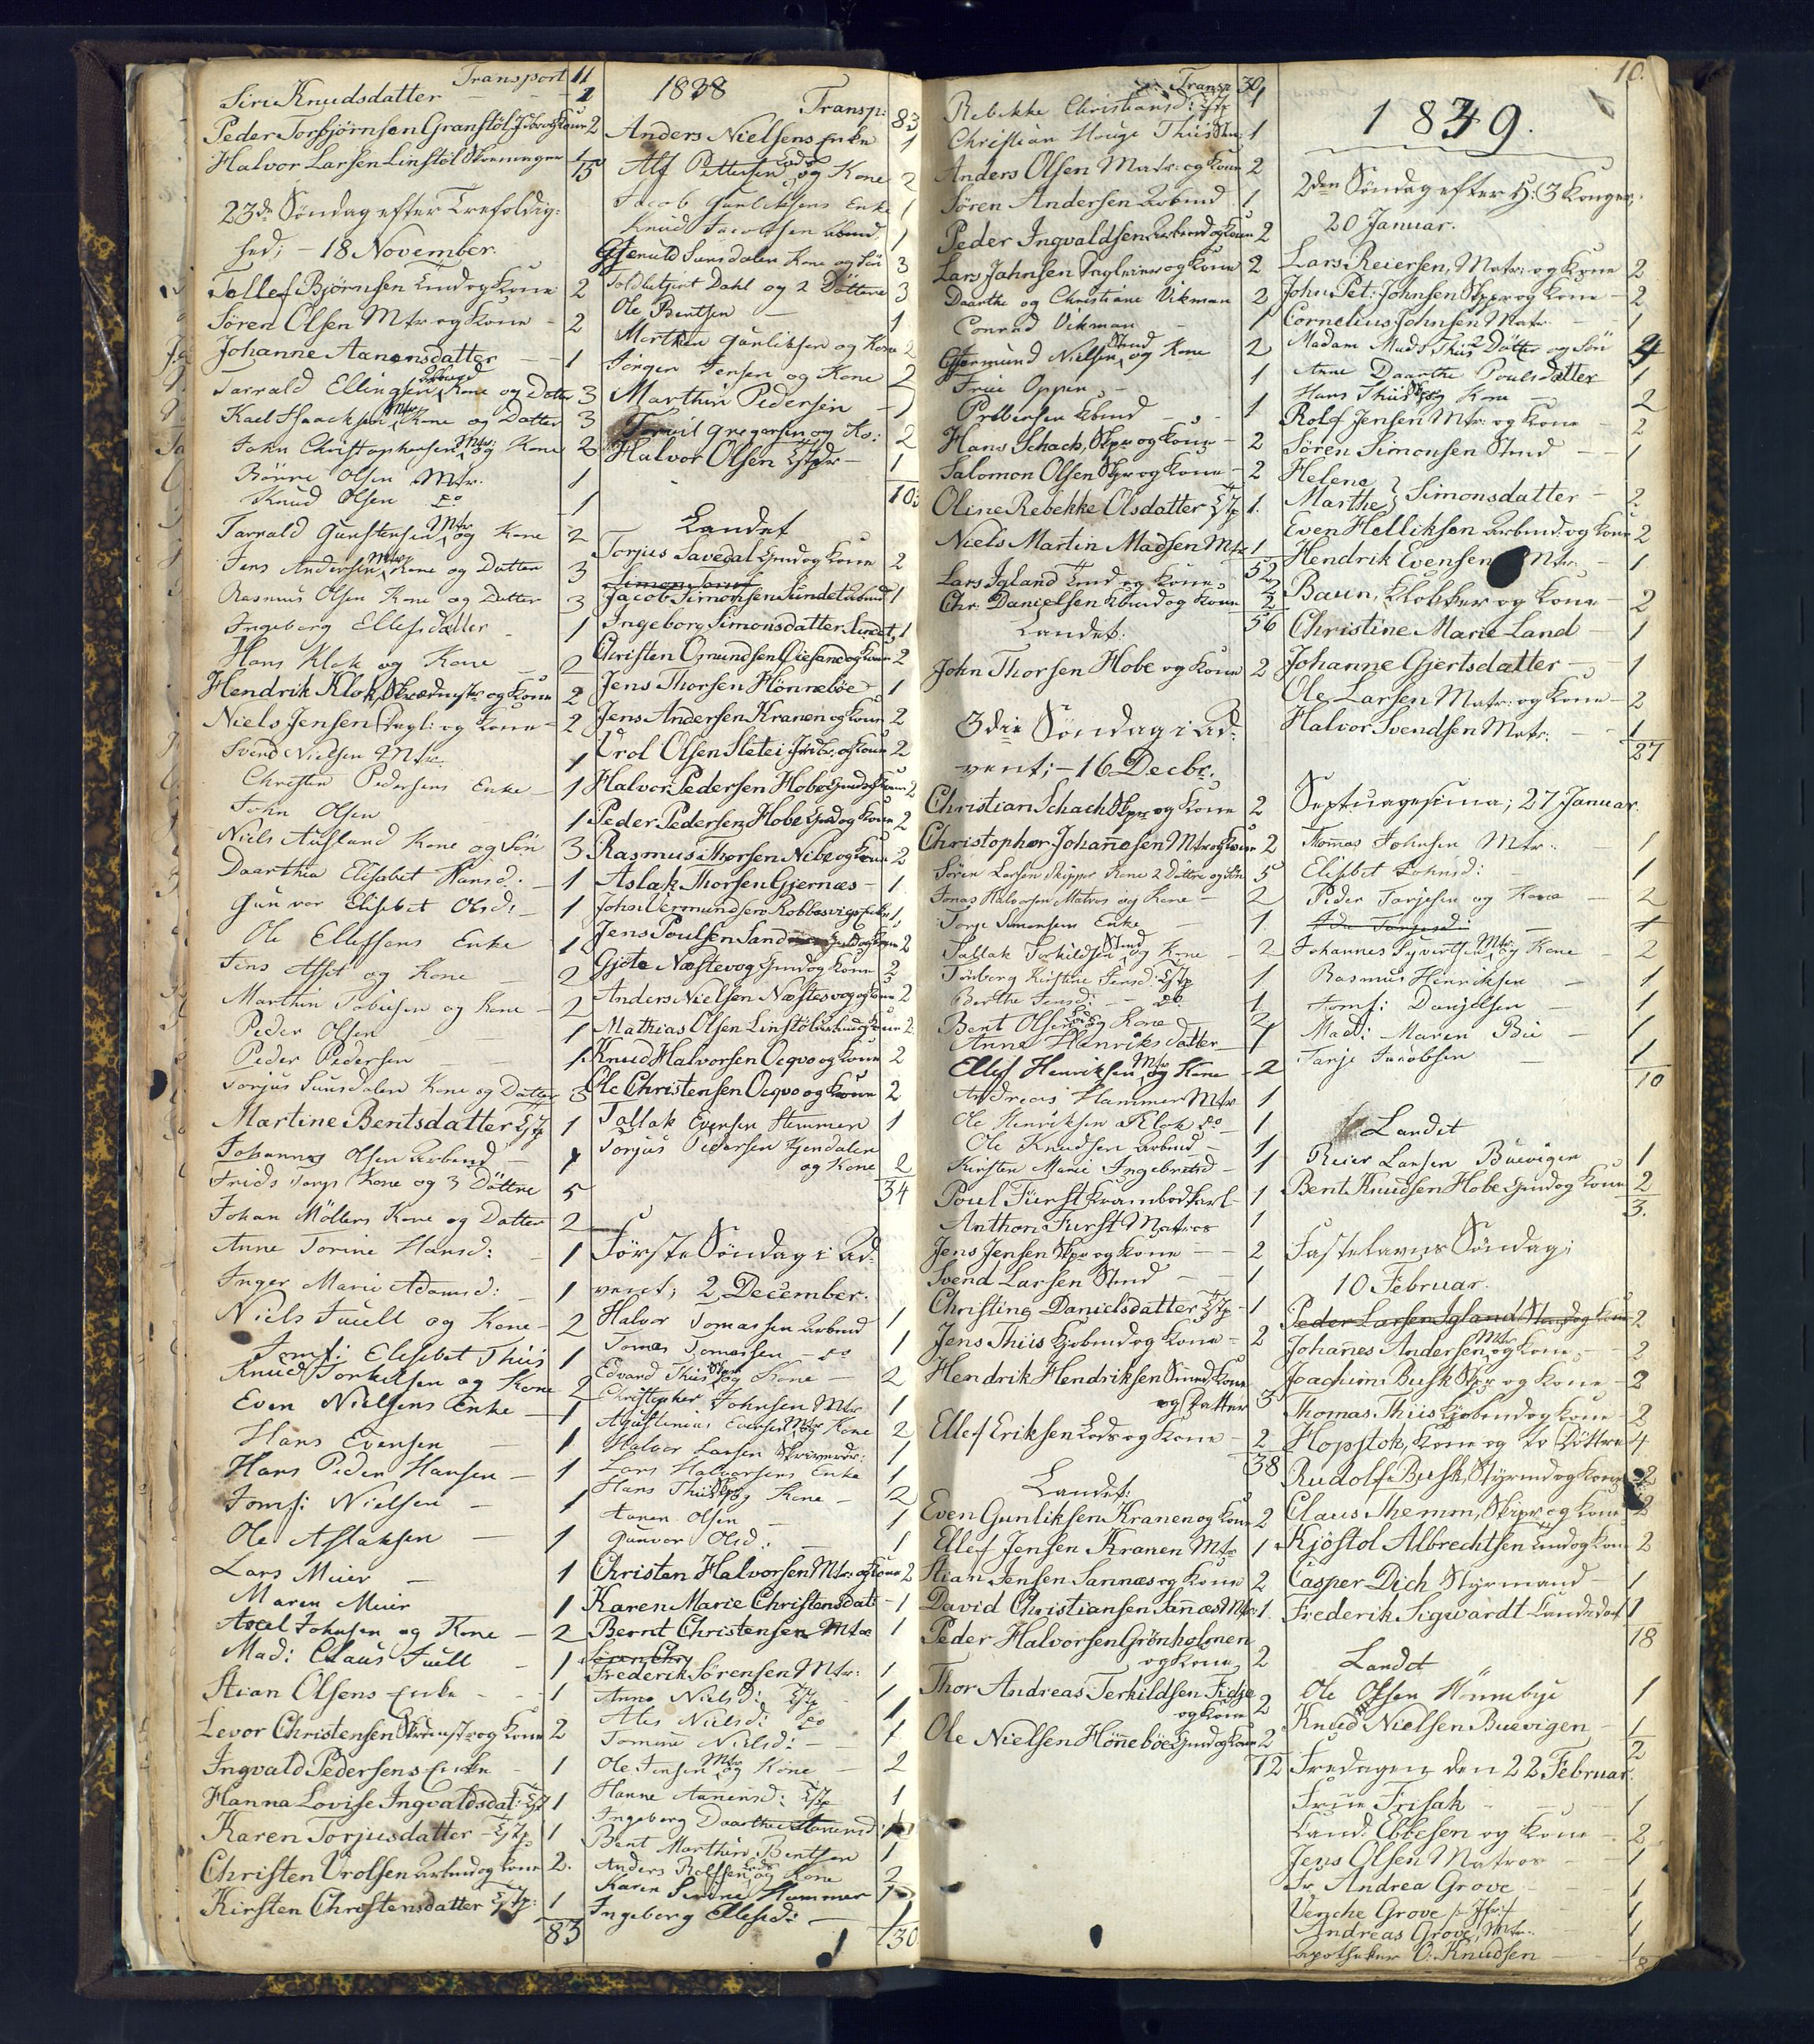 Transport 11
Siri Knudsdatter - 1
Peder Torbjörnsen Granstöl Inderst og Kone 2
Halvor Larsen Linstöl 1
15
23de Söndag efter Trefoldig-
hed; - 18 November.
Tollef Björnsen og Kone 2
Sören Olsen Mtr og Kone - 2
Johanne Aanonsdatter - - 1
Tarrald Ellingsen Arbmd Kone og Datter 3
Karl Isaacksen Mtr Kone og Datter 3
John Christophersen Mtr: og Kone 2
Börre Olsen Mtr. 1
Knud Olsen do 1
Tarrald Gunstensen Mtr og Kone 2
Jens Andersen Mtr Kone og Datter 3
Rasmus Olsen Kone og Datter 3
Ingeborg Ellefsdatter - 1
Hans Klok og Kone - 2
Hendrik Klok, og Kone 2
Niels Jensen og Kone - 2
Svend Nielsen Mtr. 1
Christen Pedersens Enke - 1
John Olsen 1
Niels Aufland Kone og Sön 3
Daarthea Elisabet Hansd. - 1
Gunvor Elisabet Olsd: - 1
Ole Ellefsens Enke - 1
Jens Assit og Kone - 2
Marthin Tobiesen og Kone - 2
Peder Olsen - - 1
Peder Pedersen - - 1
Torjus Suusdalen Kone og Datter 3
Martine Bentsdatter 1
Johannes Olsen Arbmd - 1
Frids Torp Kone og 3 Döttre 5
Johan Möllers Kone og Datter 2
Anne Torine Hansd: - 1
Inger Marie Adamsd: - 1
Niels Juell og Kone - 2
Jomf: Elisebet Thiis 1
Knud Torkelsen og Kone 2
Even Nielsens Enke - 1
Hans Evensen - 1
Hans Peder Hansen - 1
Jomf: Nielsen - 1
Ole Aslaksen - 1
Lars Meier - 1
Maren Meier 1
Axel Johnsen og Kone - 2
Mad: Claus Juell - 1
Stian Olsens Enke - - 1
Levor Christensen og Kone 2
Ingvald Pedersens Enke - 1
Hanna Lovise Ingvaldsdat: 1
Karen Torjusdatter - 1
Christen Vrolsen Arbmd og Kone 2.
Kirsten Christensdatter 1
83
1838
Transp: 83
Anders Nielsens Enke 1
Alf Pettersen Lods og Kone 2
Jacob Gunleksens Enke 1
Knud Jacobsen Arbmd 1
Gjerulds Suusdalen Kone og Sön 3
Toldbetjent Dahl og 2 Döttre 3
Ole Bentsen - 1
Morthen Gunliksen og Kone 2
Jörgen Jensen og Kone 2
Marthin Pedersen - 1
Torvil Gregersen og Ko: 2
Halvor Olsen - 1
103
Landet
Torjus Savedal Gmd og Kone 2
Simon
Jacob Simonsen Sundet Arbmd 1
Ingeborg Simonsdatter Sundet 1
Christen Omundsen og Kone 2
Jens Thorsen Hönneböe - 1
Jens Andersen Kranen og Kone 2
Vrol Olsen Sletei og Kone 2
Halvor Pedersen Hobe Gmd og Kone 2
Peder Pedersen Hobe Gmd og Kone 2
Rasmus Thorsen Nibe og Kone 2
Aslak Thorsen Gjernæs - 1.
John Germundsen Robbesvigs Enke 1
Jens Poulsen Sand og Kone 2
Gjöte Næstevog Gmd og Kone 2
Anders Nielsen Næstesvog og Kone 2
Mathias Olsen Linstöl Arbmd og Kone 2.
Knud Halvorsen Ocqvo og Kone 2
Ole Christensen Ocqvo og Kone 2
Tallak Evensen Stemmen 1
Torjus Pedersen Gjendalen
og Kone 2
34
Förste Söndag i Ad-
vent; 2 December.
Halvor Tomassen Arbmd 1
Tomas Tomassen - do 1
Edvard Thiis Skpr og Kone - 2
Christopher Johnsen Mtr 1
Agustinius Evensen Mtr Kone 2
Halvor Larsen 1
Lars Halvorsens Enke 1
Hans Thiis Skpr og Kone - 2
Aanen Olsen - 1
Gunvor Olsd: - 1
Christen Halvorsen Mtr: og Kone 2
Karen Marie Christensdat: - 1
Bernt Christensen Mtr 1
Sören Chr
Frederik Sörensen Mtr: 1
Anne Nielsd: 1
Ales Nielsd: do 1
Tomine Nielsd: - 1
Ole Jensen Mtr og Kone - 2
Hanne Aanensd: 1
Ingeborg Daarthe Aanensd 1
Bent Marthin Bentsen 1
Anders Rolfsen Lods og Kone 2
Karen Sirine Hammer 1
Ingeborg Ellefsd: - 1
30
Transp 30
Rebekke Christiansd: 1
Christian Houge Thiis 1
Anders Olsen Matr: og Kone 2
Sören Andersen Arbmd. 1
Peder Ingvaldsen Arbmd og Kone 2
Lars Jahnsen og Kone 2
Daarthe og Christiane Vikman 2
Conrad Vikman - 1
Gjermund Nielsen Stmd og Kone 2
Frue Oppen - 1
Prebensen Kbmd - 1
Hans Schach, Skpr og Kone - 2
Salomon Olsen Skpr og Kone - 2
Oline Rebekke Olsdatter 1.
Niels Martin Madsen Mtr 1
52
Lars Igland og Kone 2
Chr. Danielsen Kbmd og Kone 2
56
Landet:
John Thorsen Hobe og Kone 2
3die Söndag i Ad-
vent; - 16 Decbr.
Christian Schach Skpr og Kone 2
Christopher Johannesen Mtr og Kone 2
Sören Larsen Skipper Kone 2 Döttre og Sön 5
Jonas Halvorsen Matros og Kone - 2
Torje Simonsens Enke - 1.
Tallak Torkildsen Stmd og Kone - 2
Torborg Kirstine Jensd: 1
Berthe Jensd: - - do. 1
Bent Olsen Lods og Kone - 2
Anna Henriksdatter 1
Ellef Henriksen Mtr og Kone - 2
Andreas Hammer Mtr 1
Ole Henriksen Klok do 1
Ole Knudsen Arbmd - 1
Kirsten Marie Ingebretsd - 1
Poul Fürst Krambodkarl - 1
Anthon Furst Matros 1
Jens Jensen Skpr og Kone - - 2
Svend Larsen Stmd - - 1
Christine Danielsdatter - 1
Jens Thiis Kjobmd og Kone - 2
Hendrik Hendriksen Smed Kone
og Datter 3
Ellef Eriksen Lods og Kone - 2
38
Landet:
Even Gunliksen Kranen og Kone 2
Ellef Jensen Kranen Mtr 1
Stian Jensen Sannæs og Kone 2
David Christiansen Sannæs Mtr 1.
Peder Halvorsen Grönholmen
og Kone 2
Thor Andreas Terkildsen Fidje
og Kone 2
Ole Nielsen Hönneböe Gmd og Kone 2
12
10.
1839.
2den Söndag efter H: 3 Konger,
20 Januar.
Lars Reiersen, Matr: og Kone 2
John Pet: Johnsen Skpr og Kone - 2
Cornelius Johnsen Matr. - - 1
Madam Mads Thiis 2 Döttre og Sön 4
Anne Daarthe Poulsdatter 1
Hans Thiis Skpr og Kone - 2
Rolf Jensen Mtr: og Kone - 2
Sören Simonsen Stmd - - 1
Helene
Marthe } Simonsdatter - 2
Even Helliksen Arbmd: og Kone 2
Hendrik Evensen Mtr. - 1
Baun, Klokker og Kone - 2
Christine Marie Land - 1
Johanne Gjertsdatter - 1
Ole Larsen Matr: og Kone - 2
Halvor Svendsen Matr: - - 1
27
Septuagesima; 27 Januar.
Thomas Johnsen Mtr: 1
Elisbet Johnsd: - 1
Peder Torjesen og Kone - 2
Johannes Syvertsen Mtr: og Kone - 2
Rasmus Henriksen - 1
Jomf: Danjelsen - 1
Mad: Maren Bie - 1
Tarje Jacobsen - 1
10
Landet
Reier Larsen Buevigen 1
Bent Knudsen Hobe Gmd og Kone 2
3.
Fastelavns Söndag;
10 Februar.
Peder Larsen Igland og Kone 2
Johanes Andersen Mtr og Kone - 2
Joachim Busk Skpr og Kone - 2
Thomas Thiis Kjobmd og Kone - 2
Hopstok, Kone og to Döttre 4
Rudolf Busk, Styrmd og Kone 2
Claus Themm, Skipr og Kone 2
Kjöstol Albrechtsen og Kone 2
Casper Dich Styrmand - 1
Frederik Sigwardt Candidat 1
18
Landet
Ole Olsen Hönnebye 1
Knud Nielsen Buevigen - 1
2
Fredagen den 22 Februar.
Frue Frisak - - 1
Cand: Ebbesen og Kone - 2
Jens Olsen Matros - - 1
Fr. Andrea Grove - - 1
Venche Grove /: Jfr :/ - 1
Andreas Grove, Mtr. - 1
Apotheker O. Knudsen - - 1
8